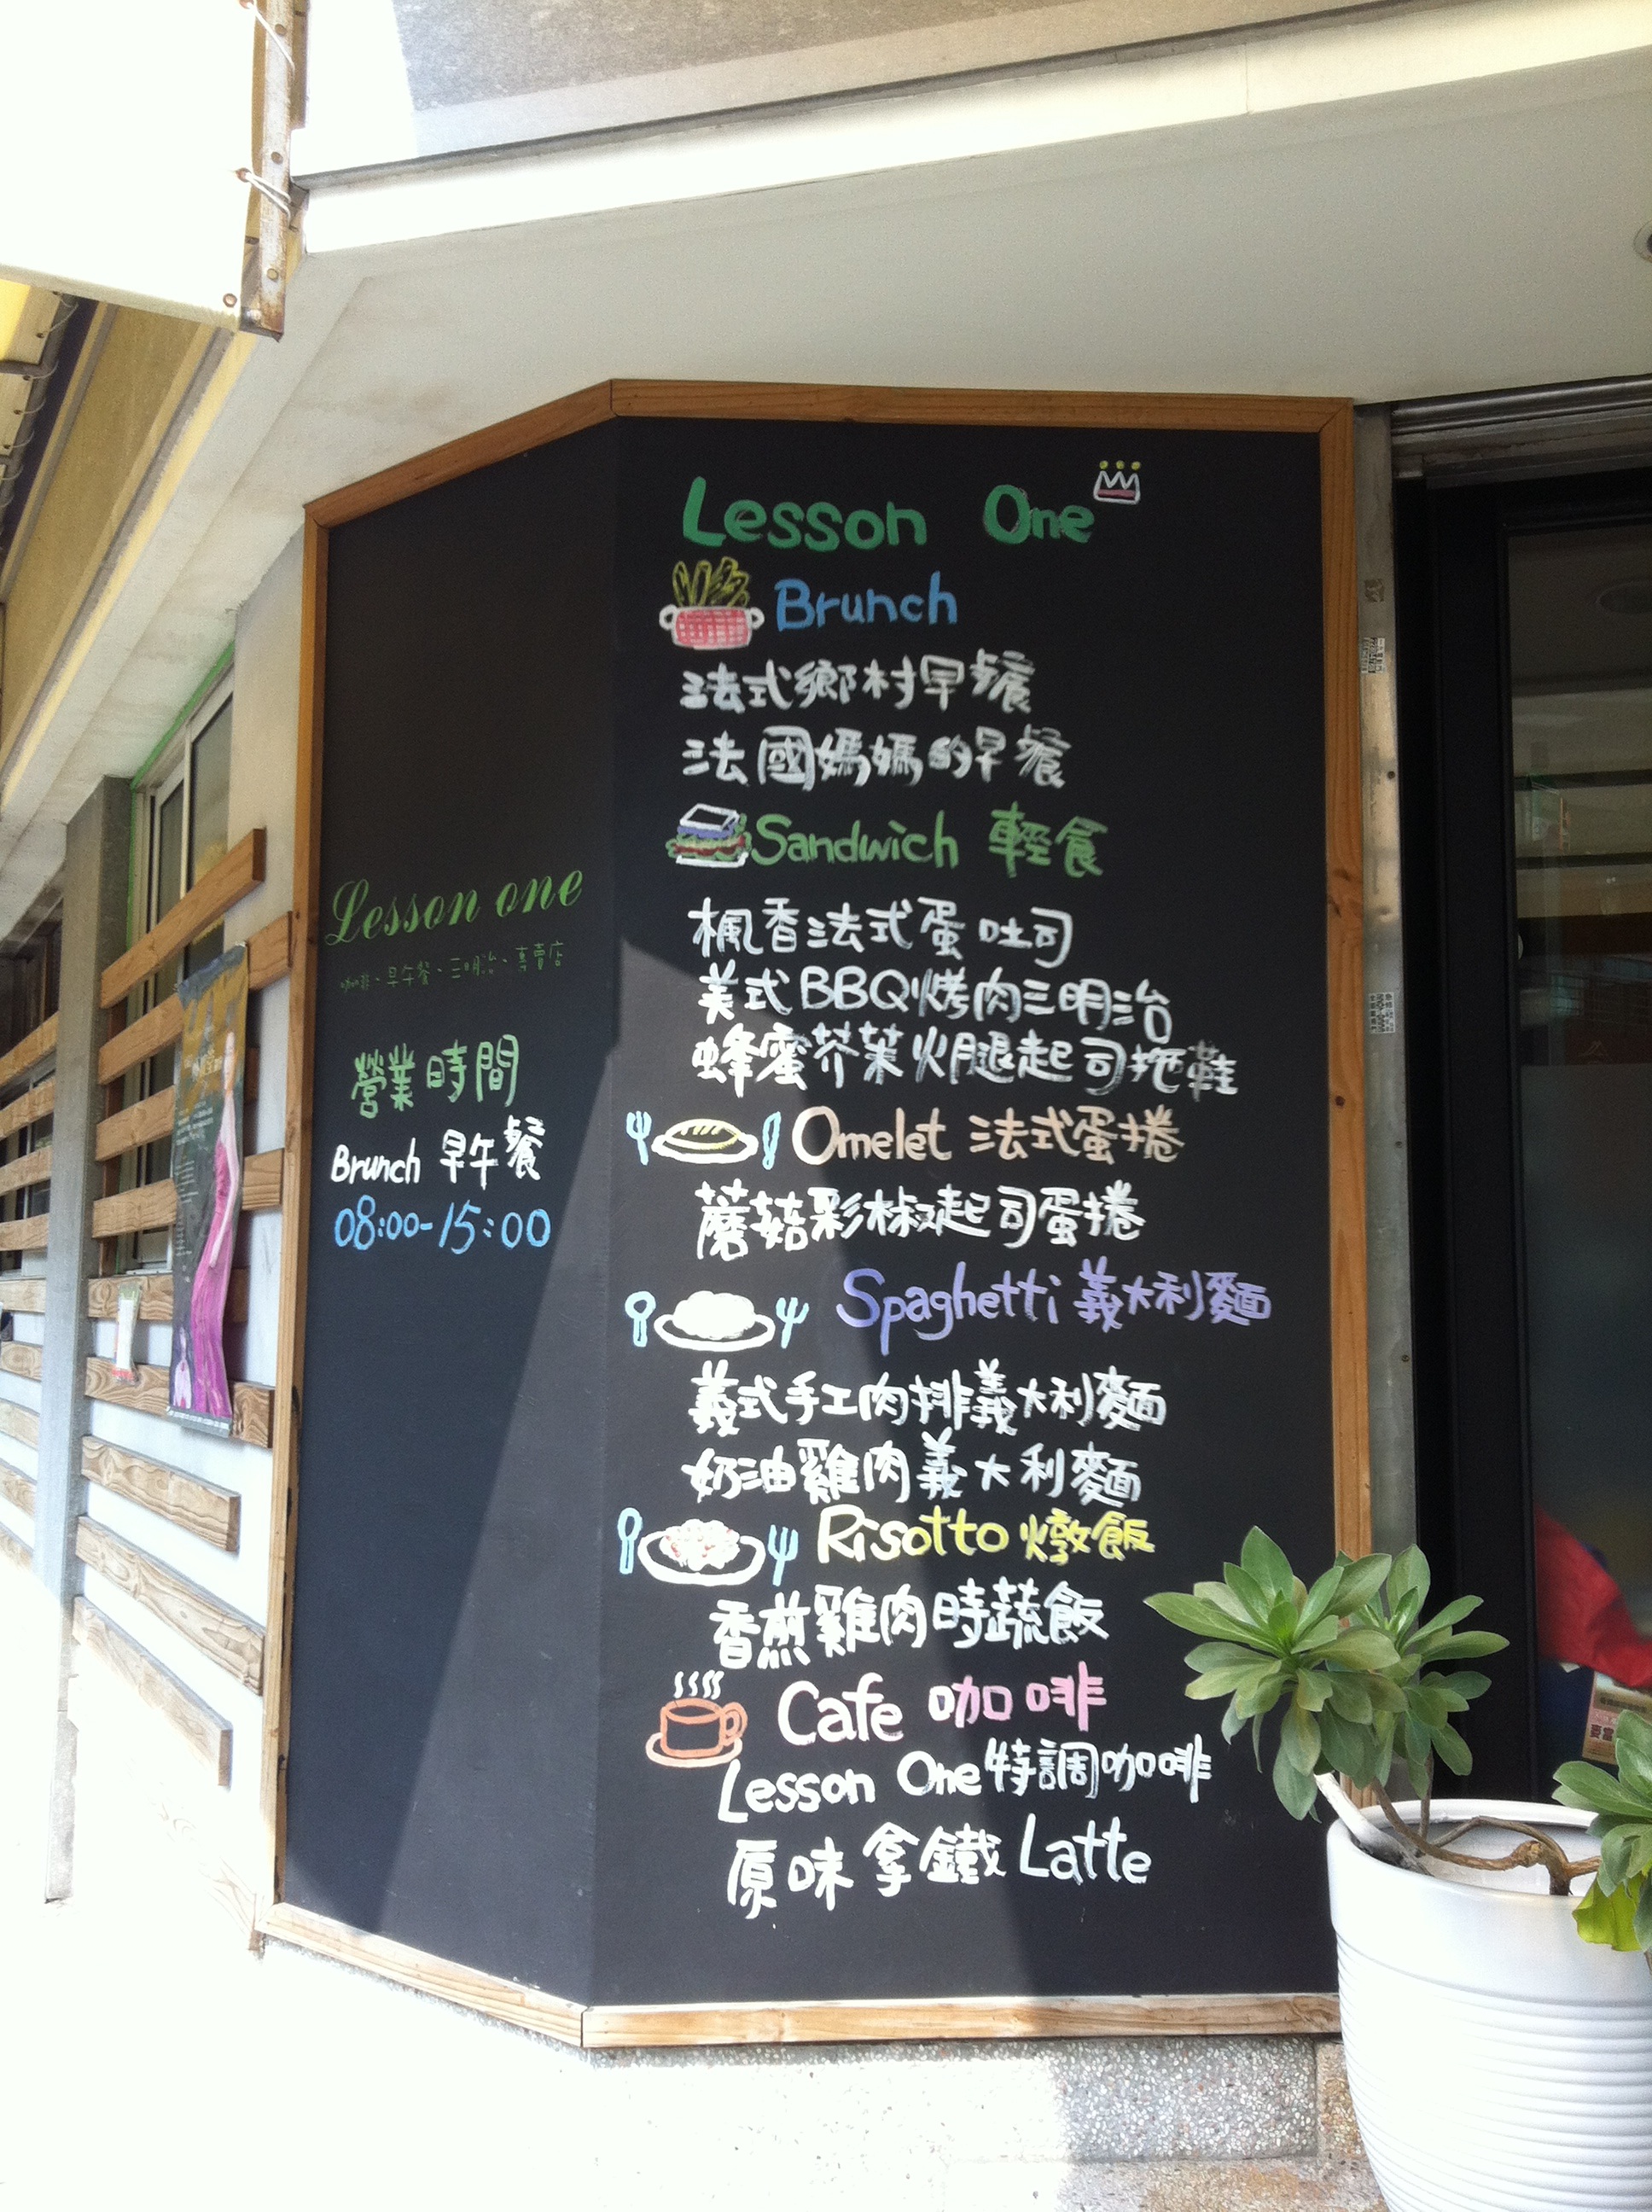 Lesson One
Brunch
法式鄉村早餐
法國媽媽的早餐
Sandwich 輕食
楓香法式蛋吐司
美式BBQ烤肉三明治
蜂蜜芥茉火腿起司拖鞋
Omelet 法式蛋捲
蘑菇彩椒起司蛋捲
Spaghetti 義大利麵
義式手工肉排義大利麵
奶油雞肉義大利麵
Risotto 燉飯
香煎雞肉時蔬飯
Cafe 咖啡
Lesson One特調咖啡
原味拿鐵Latte
Lesson one
咖啡、早午餐、三明治、專賣店
營業時間
Brunch 早午餐
08:00-15:00